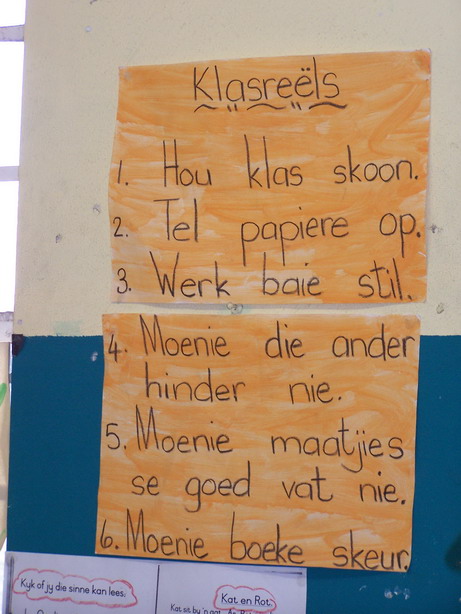 Klasreëls
1. Hou klas skoon.
2. Tel papiere op.
3. Werk baie stil.
4. Moenie die ander
hinder nie.
5. Moenie maatjies
se goed vat nie.
6. Moenie boeke skeur.
Kyk of jy die sinne kan lees.
Kat en Rot.
Kat sit by 'n gat.